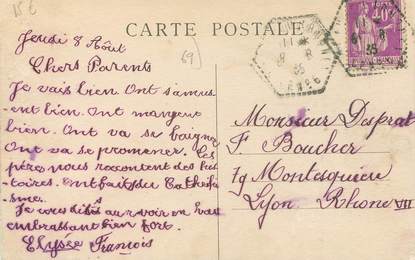 15€
CARTE POSTALE
Jeudi 8 Août
(9)
Chers Parents
Je vais bien. Ont s'amus
ent bien. Ont mangent
bien. Ont va se baigner
Ont va se promener. Les
pères nous racontent des his
toires. ont fait du Cathéhi
sme.
Je vous dit au revoir en vous
embrassant bien fort.
Elysée François
11
8 - 8
35
8 - 8
35
40c
Monsieur Desprat
F. Boucher
79 Montesquieu
Lyon Rhone VII